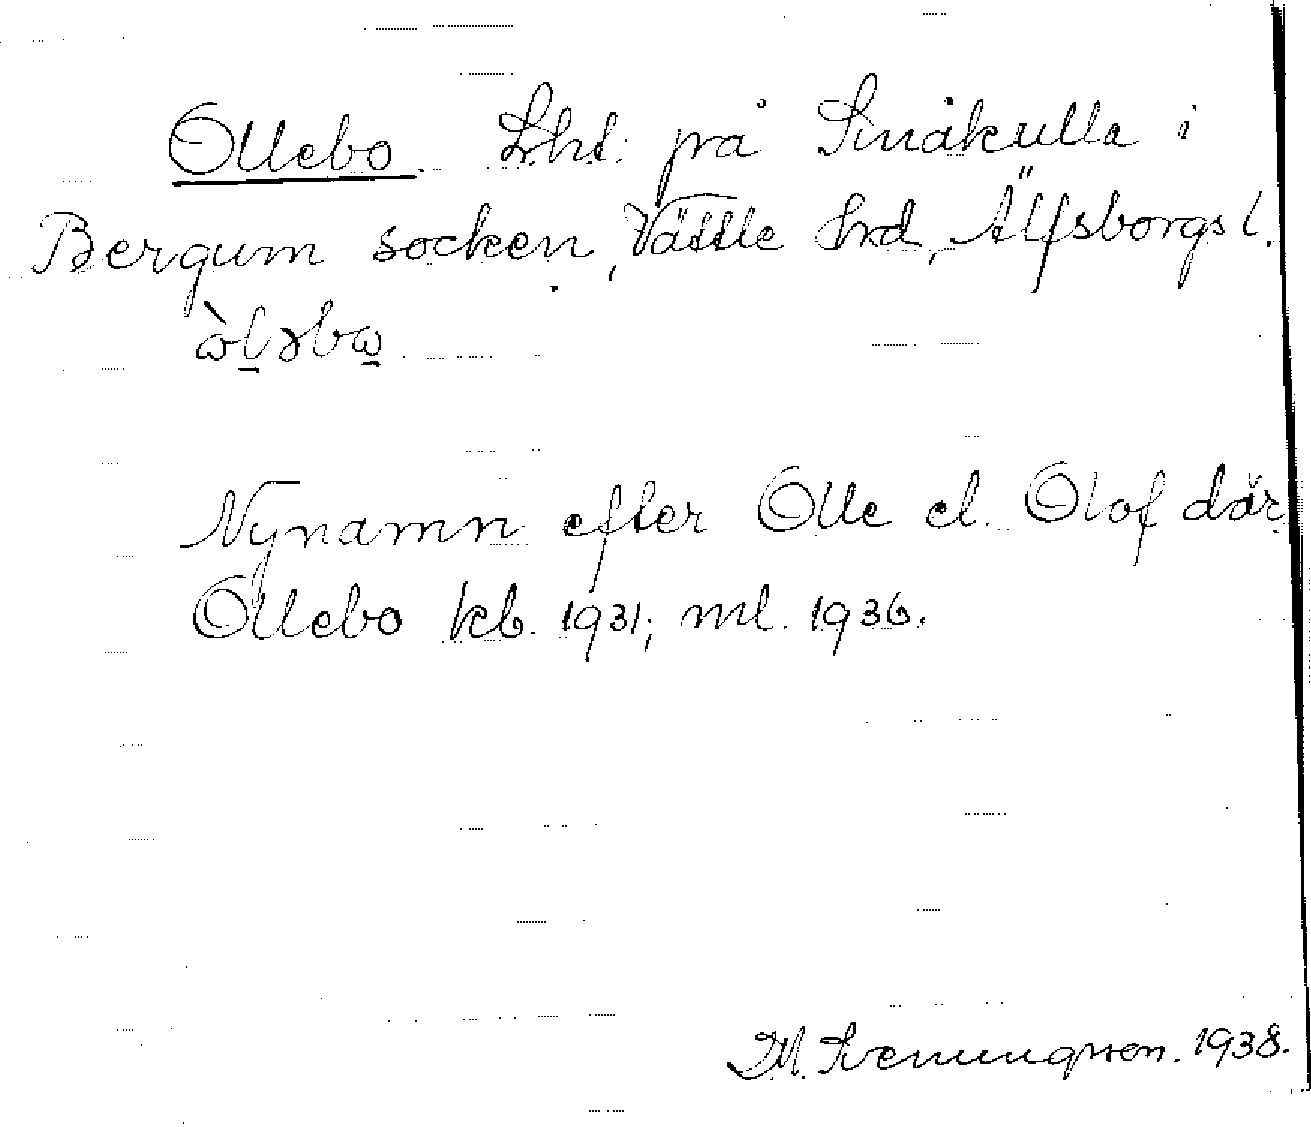 Ollebo Lht. på Småkulla i
Bergum socken, Vättle hrd, Älfsborgs l.
ὼl̠əbω̠
Nynamn efter Olle el. Olof där
Ollebo kb. 1931; ml. 1936.
1938.